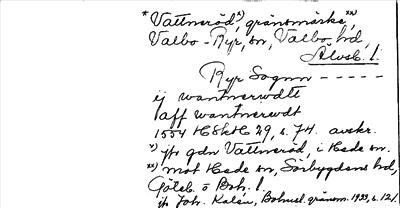 *Vattneröd,*) gränsmärke,**)
Valbo-Ryr, sn, Valbo hd,
Älvsb. l.
Ryr Sognn - - - - -
ij wantnerwdtt
aff wantnerwdt
1554 H8kH 29, s. 74. avskr.
*) jfr gdn Vattneröd, i Hede sn.
**) mot Hede sn, Sörbygdens hd,
Göteb. o Boh. l.
jfr Joh. Kalén, Bohusl. gränsm. 1933, s. 121.